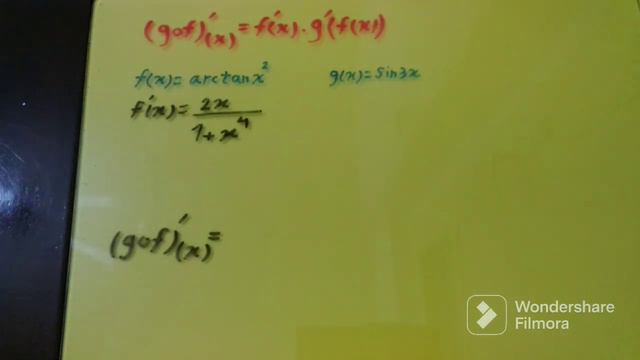 (gof)′(x) = f′(x) · g′(f(x))
f(x) = arctanx² g(x) = sin3x
f′(x) = 2x / 1+x⁴
(gof)′(x) =
Wondershare
Filmora